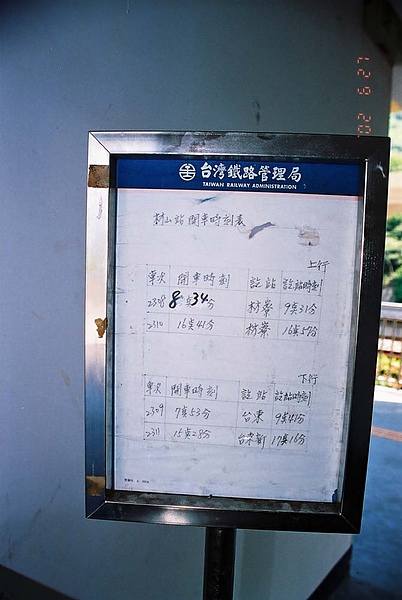 02 6 27
台灣鐵路管理局
TAIWAN RAILWAY ADMINISTRATION
枋山站 開車時刻表
上行
車次 開車時刻 訖站 訖站時刻
2308 8奌34分 枋寮 9奌31分
2310 16奌41分 枋寮 16奌57分
下行
車次 開車時刻 訖站 訖站時刻
2309 7奌53分 台東 9奌41分
2311 15奌28分 台東新 17奌16分